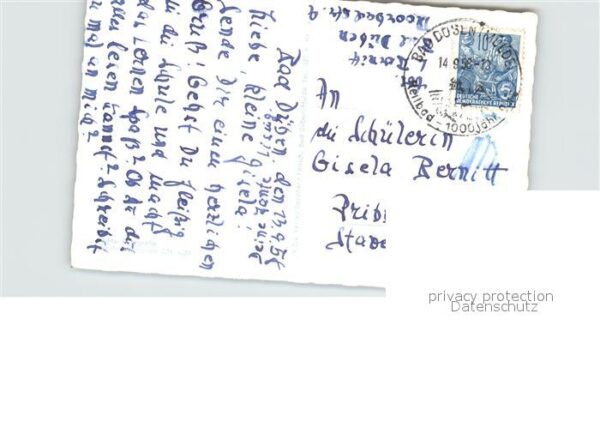 Bad Düben den 13.9.56
Liebe, kleine Gisela!
Sende Dir einen herzlichen
Gruß! Gehst Du fleißig
in die Schule und macht
das Lernen Spaß? Ob Du das
lesen kannst? Schreibst
Du mal an mich?
Deine
Bernitt
Bad Düben
BAD DÜBEN
14.9.56
Heilbad - 1000jähr.
DEUTSCHE
DEMOKRATISCHE REPUBLIK
5
An
die Schülerin
Gisela Bernitt
Prib
privacy protection
Datenschutz